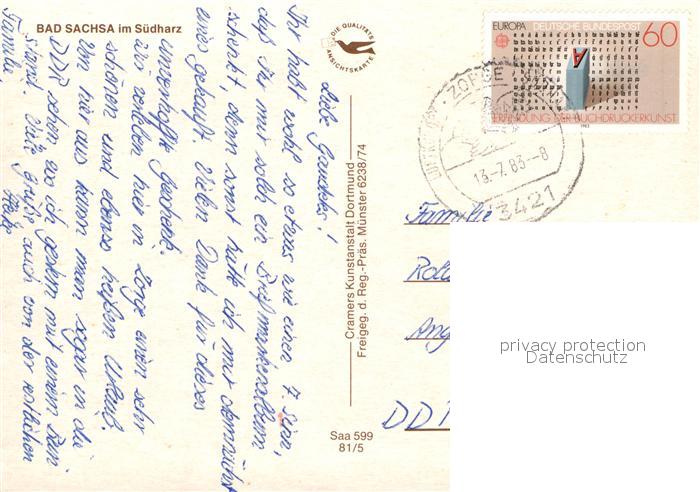 BAD SACHSA im Südharz
DIE QUALITÄTS
ANSICHTSKARTE
Liebe Gaudeks!
Ihr habt wohl so etwas wie einen 7. Sinn,
daß Ihr mir solch ein Briefmarkenalbum
schenkt, denn sonst hätte ich mir demnächst
eines gekauft. Vielen Dank für dieses
Geschenk.
Wir verleben hier in Zorge einen sehr
schönen und ebenso heißen Urlaub.
Von hier aus kann man sogar in die
DDR sehen, wo ich gestern mit einem Bein
stand. Viele Grüße auch von der restlichen
Familie.
Heike
Cramers Kunstanstalt Dortmund
Freigeg. d. Reg.-Präs. Münster 6238/74
Saa 599
81/5
EUROPA DEUTSCHE BUNDESPOST 60
A
ERFINDUNG DER BUCHDRUCKERKUNST
1983
ZORGE
13.-7.83-8
3421
Familie
Ang
DDR
privacy protection
Datenschutz